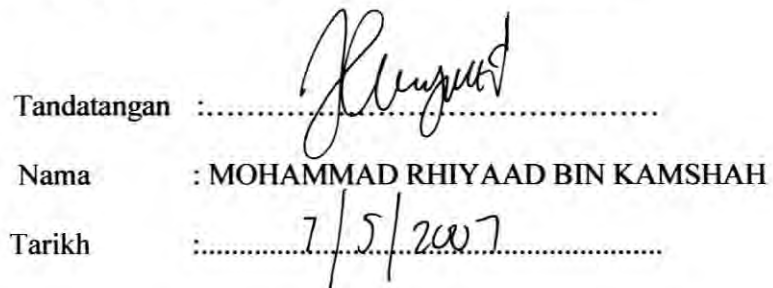 Tandatangan :
Nama : MOHAMMAD RHIYAAD BIN KAMSHAH
Tarikh : 7/5/2007